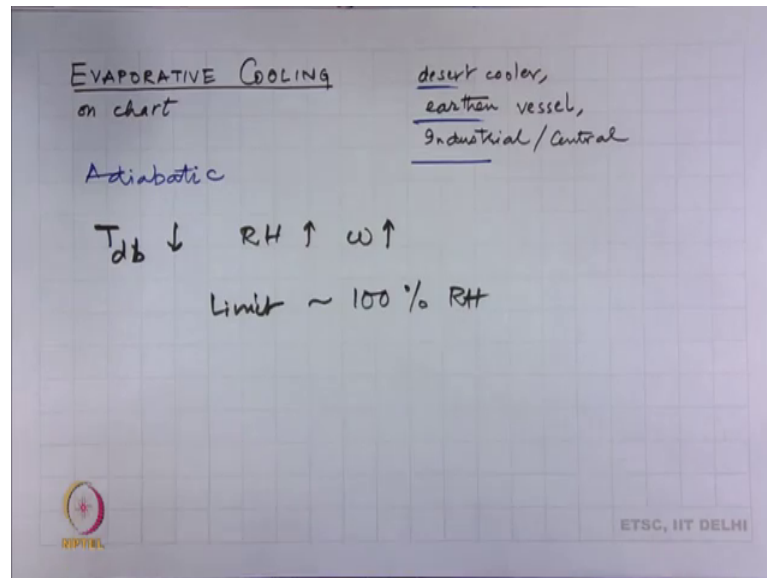 EVAPORATIVE COOLING
on chart
desert cooler,
earthen vessel,
Industrial / Central
Adiabatic
Tdb ↓ RH ↑ ω ↑
Limit ~ 100 % RH
NPTEL
ETSC, IIT DELHI